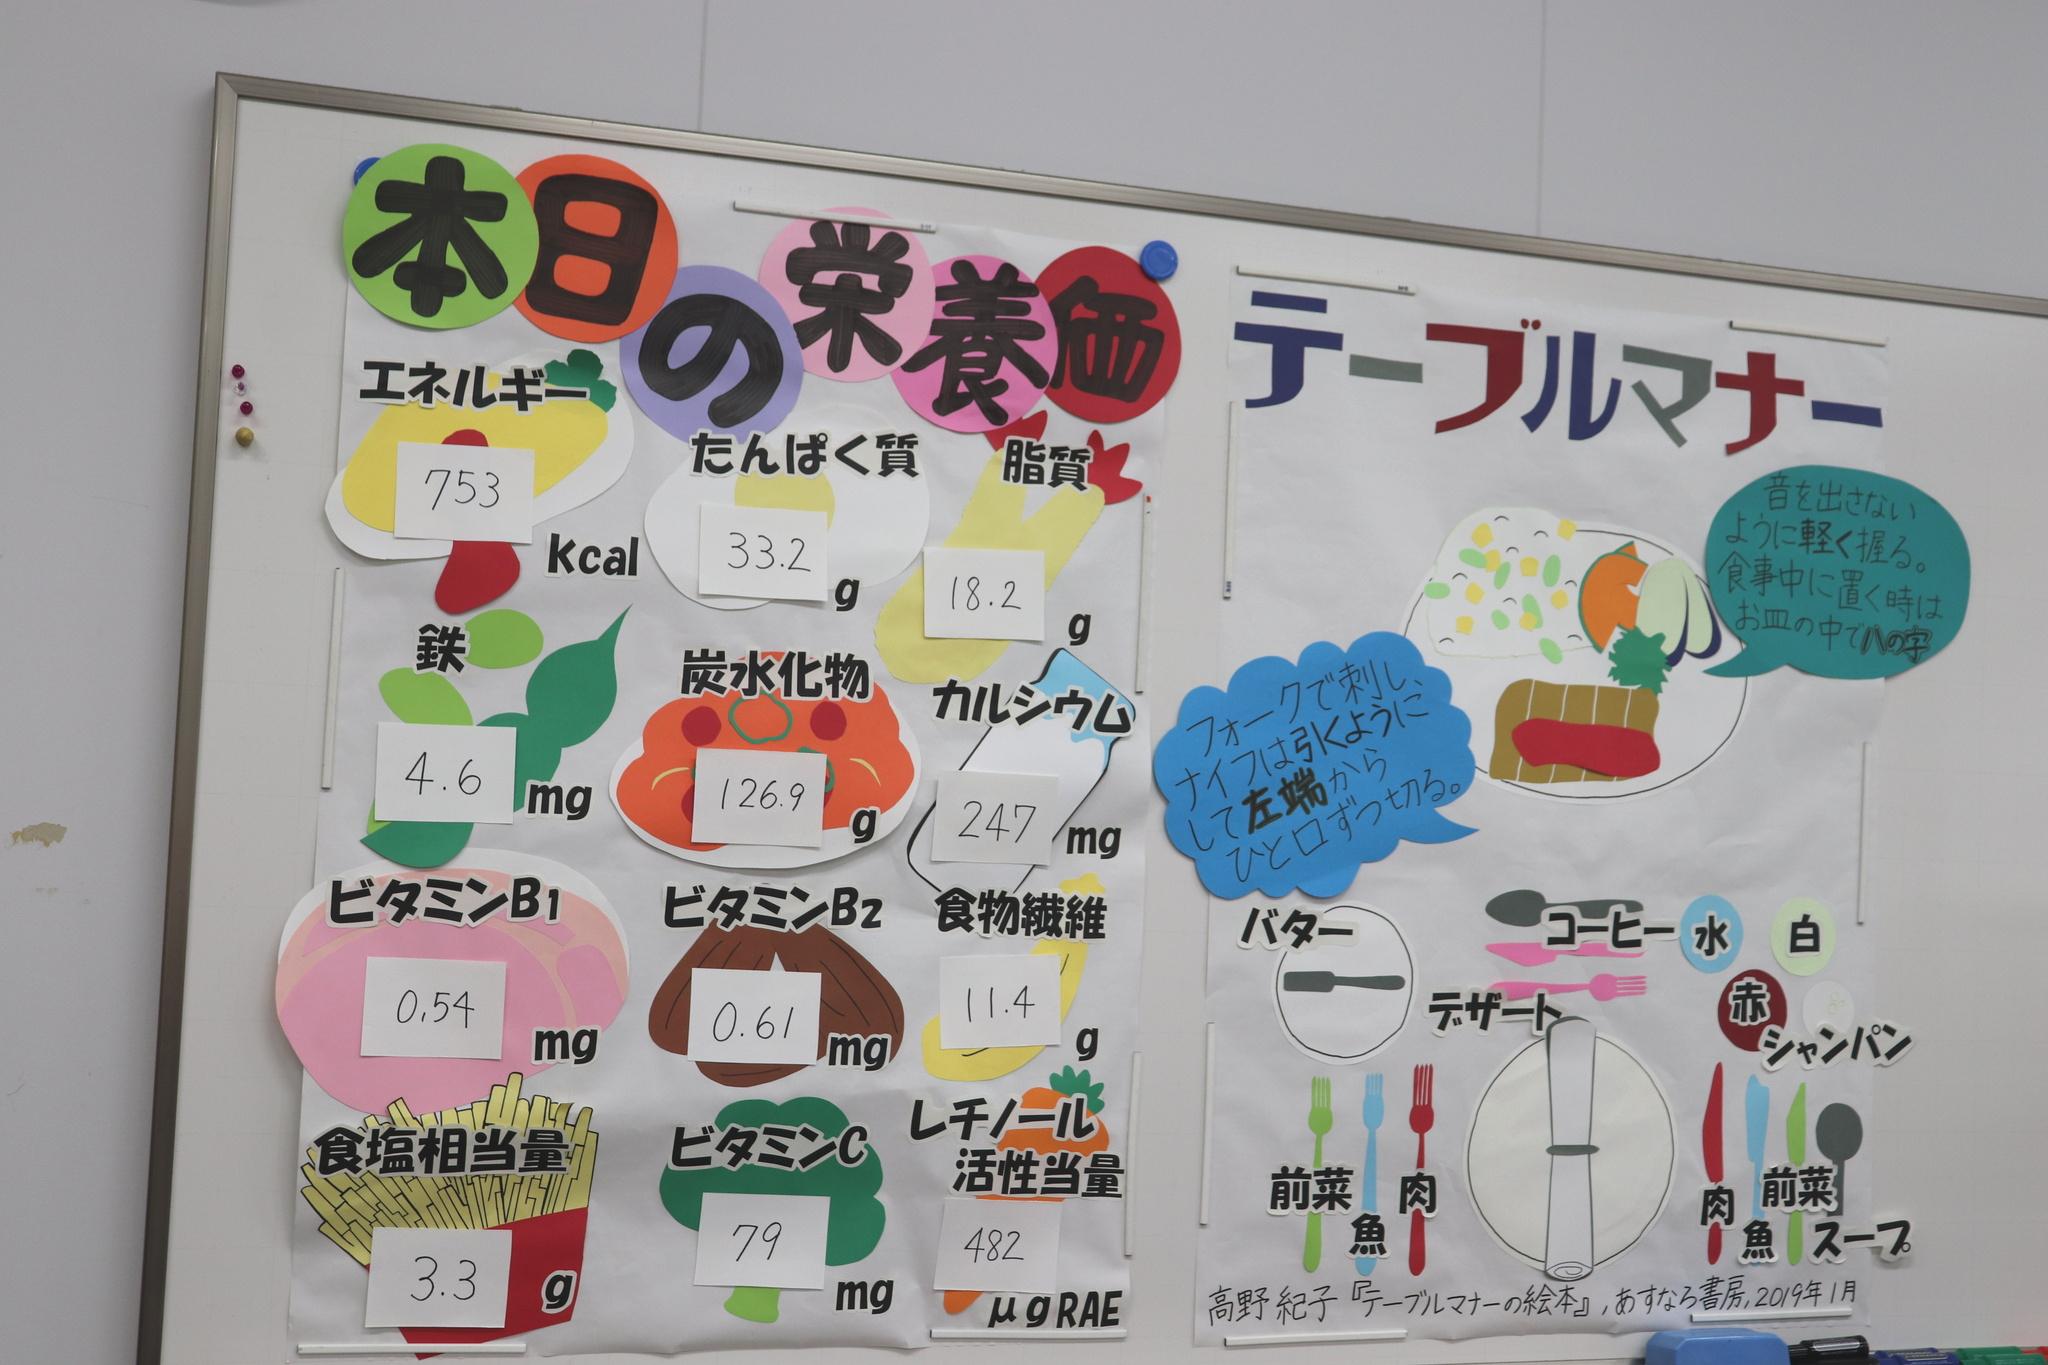 本日の栄養価
エネルギー
753
kcal
たんぱく質
33.2
g
脂質
18.2
g
鉄
4.6
mg
炭水化物
126.9
g
カルシウム
247
mg
ビタミンB1
0.54
mg
ビタミンB2
0.61
mg
食物繊維
11.4
g
食塩相当量
3.3
g
ビタミンC
79
mg
レチノール
活性当量
482
μgRAE
テーブルマナー
音を出さない
ように軽く握る。
食事中に置く時は
お皿の中で八の字
フォークで刺し、
ナイフは引くように
して左端から
ひと口ずつ切る。
バター
コーヒー
水
白
デザート
赤
シャンパン
前菜
魚
肉
肉
魚
前菜
スープ
高野 紀子『テーブルマナーの絵本』,あすなろ書房,2019年1月